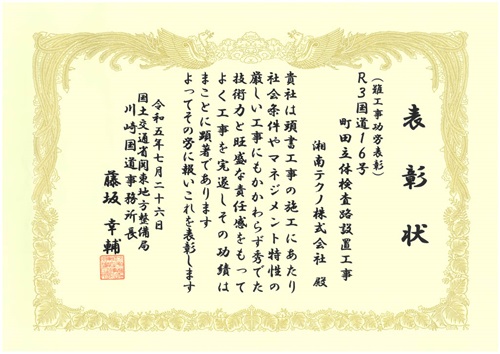 表彰状
(難工事功労表彰)
R3国道16号
町田立体検査路設置工事
湘南テクノ株式会社 殿
貴社は頭書工事の施工にあたり
社会条件やマネジメント特性の
厳しい工事にもかかわらず秀でた
技術力と旺盛な責任感をもって
よく工事を完遂しその功績は
まことに顕著であります
よってその労に報いこれを表彰します
令和五年七月二十六日
国土交通省関東地方整備局
川崎国道事務所長
藤坂 幸輔